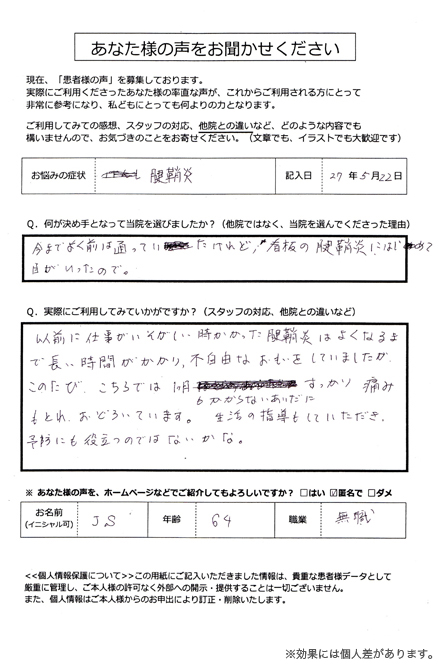 あなた様の声をお聞かせください
現在、「患者様の声」を募集しております。
実際にご利用くださったあなた様の率直な声が、これからご利用される方にとって
非常に参考になり、私どもにとっても何よりの力となります。
ご利用してみての感想、スタッフの対応、他院との違いなど、どのような内容でも
構いませんので、お気づきのことをお寄せください。（文章でも、イラストでも大歓迎です）
お悩みの症状 腱鞘炎 記入日 27年5月22日
Q．何が決め手となって当院を選びましたか？（他院ではなく、当院を選んでくださった理由）
今までよく前は通っていたけれど、看板の腱鞘炎にはじめて
目がいったので。
Q．実際にご利用してみていかがですか？（スタッフの対応、他院との違いなど）
以前に仕事がいそがしい時かかった腱鞘炎はよくなるま
で長い時間がかかり、不自由なおもいをしていましたが、
このたび、こちらでは1ヶ月 すっかり痛み
もかからないあいだに
もとれ、おどろいています。生活の指導もしていただき、
予防にも役立つのではないかな。
※ あなた様の声を、ホームページなどでご紹介してもよろしいですか？ □はい ☑匿名で □ダメ
お名前 (イニシャル可) J S 年齢 64 職業 無職
<<個人情報保護について>>この用紙にご記入いただきました情報は、貴重な患者様データとして
厳重に管理し、ご本人様の許可なく外部への開示・提供することは一切ございません。
また、個人情報はご本人様からのお申出により訂正・削除いたします。
※効果には個人差があります。